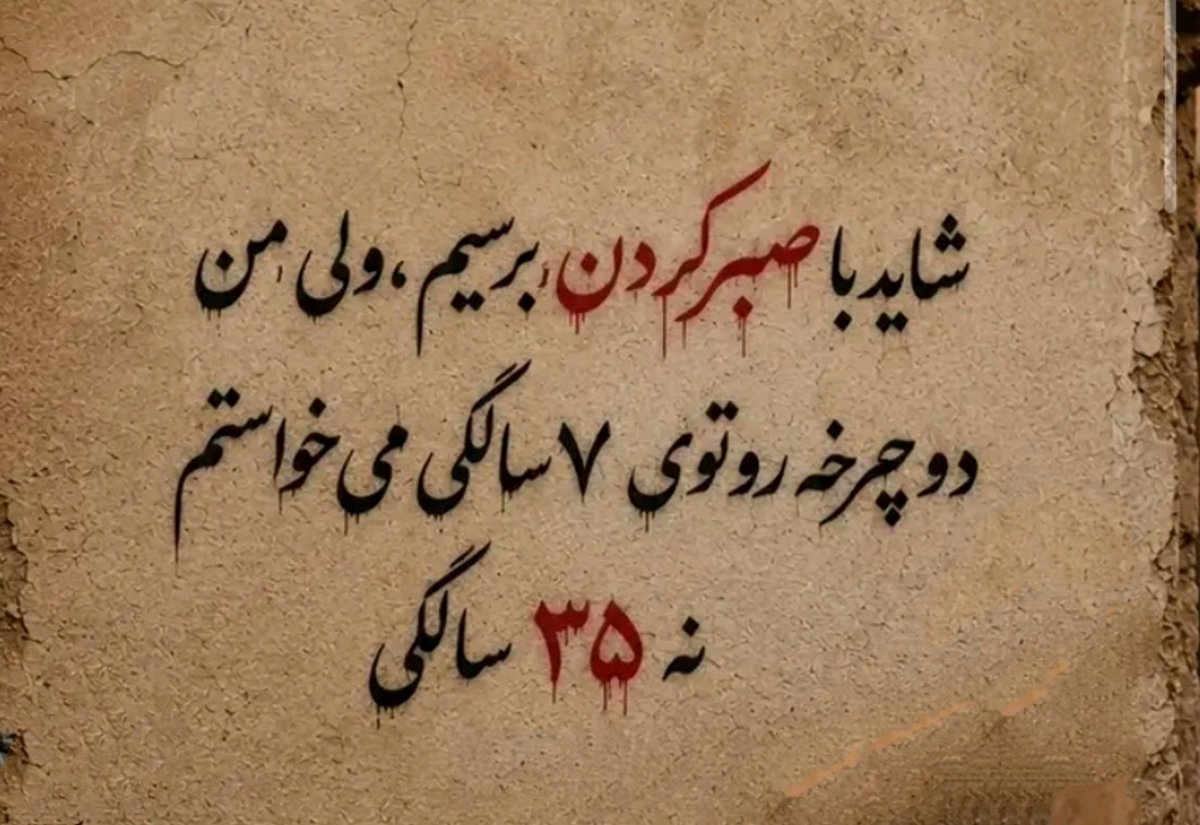 شاید با صبر کردن، برسیم، ولی من
دوچرخه رو توی ۷ سالگی می خواستم
نه ۳۵ سالگی